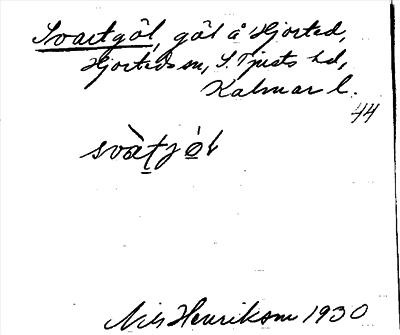 Svartgöl, göl å Hjorted,
Hjorteds sn, S. Tjusts hd,
Kalmar l.
44
svàt̠jö̠l
Nils Henrikson 1930